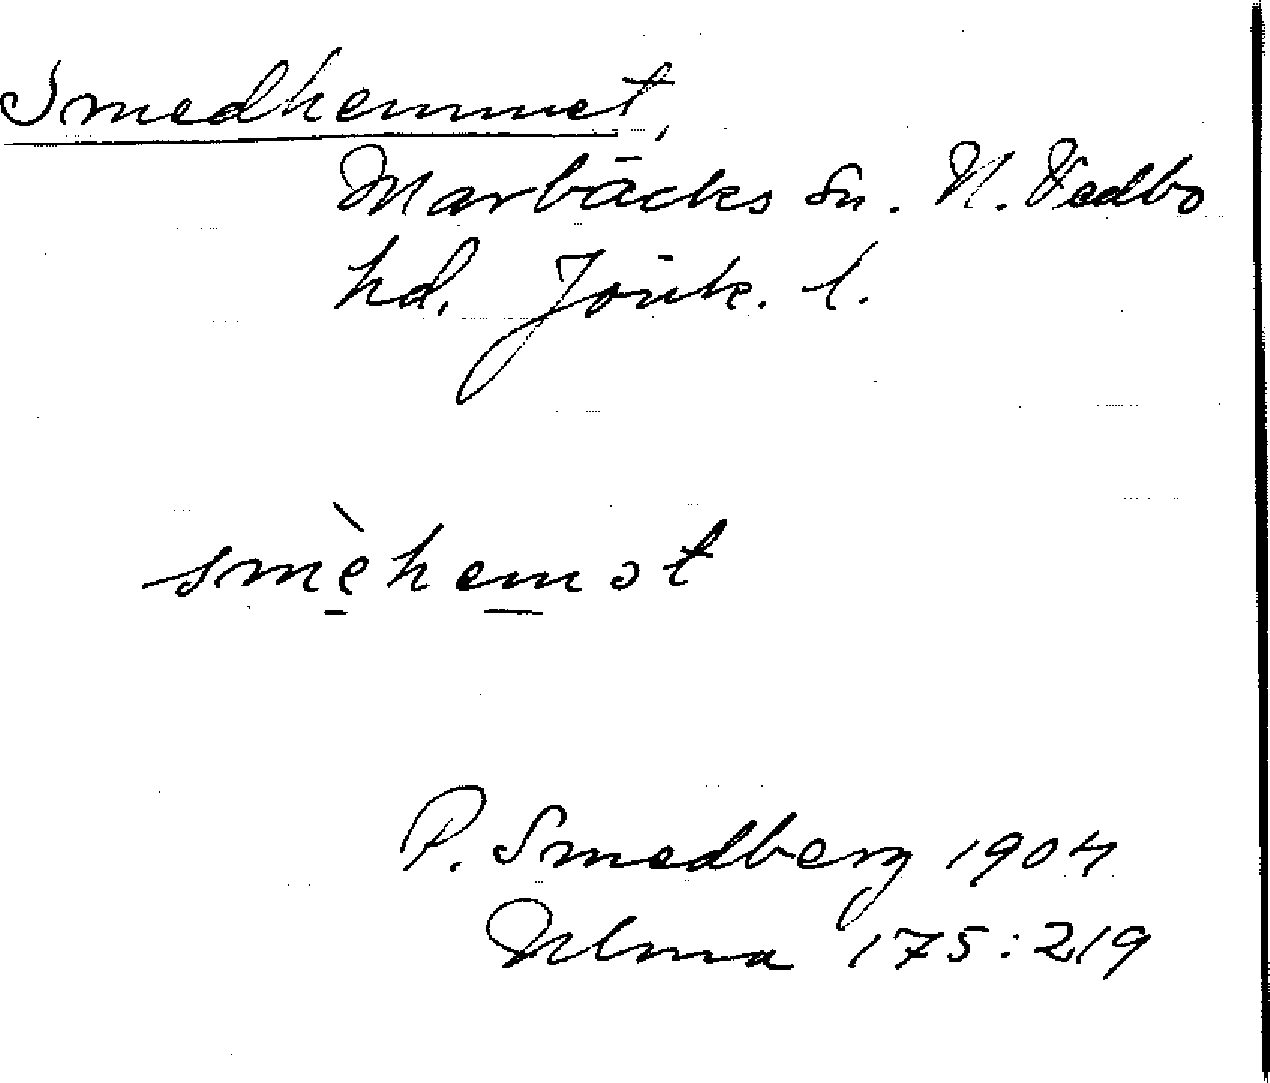 Smedhemmet,
Marbäcks sn. N. Vedbo
hd. Jönk. l.
smèhemət
P. Smedberg 1904
Ulma 175:219